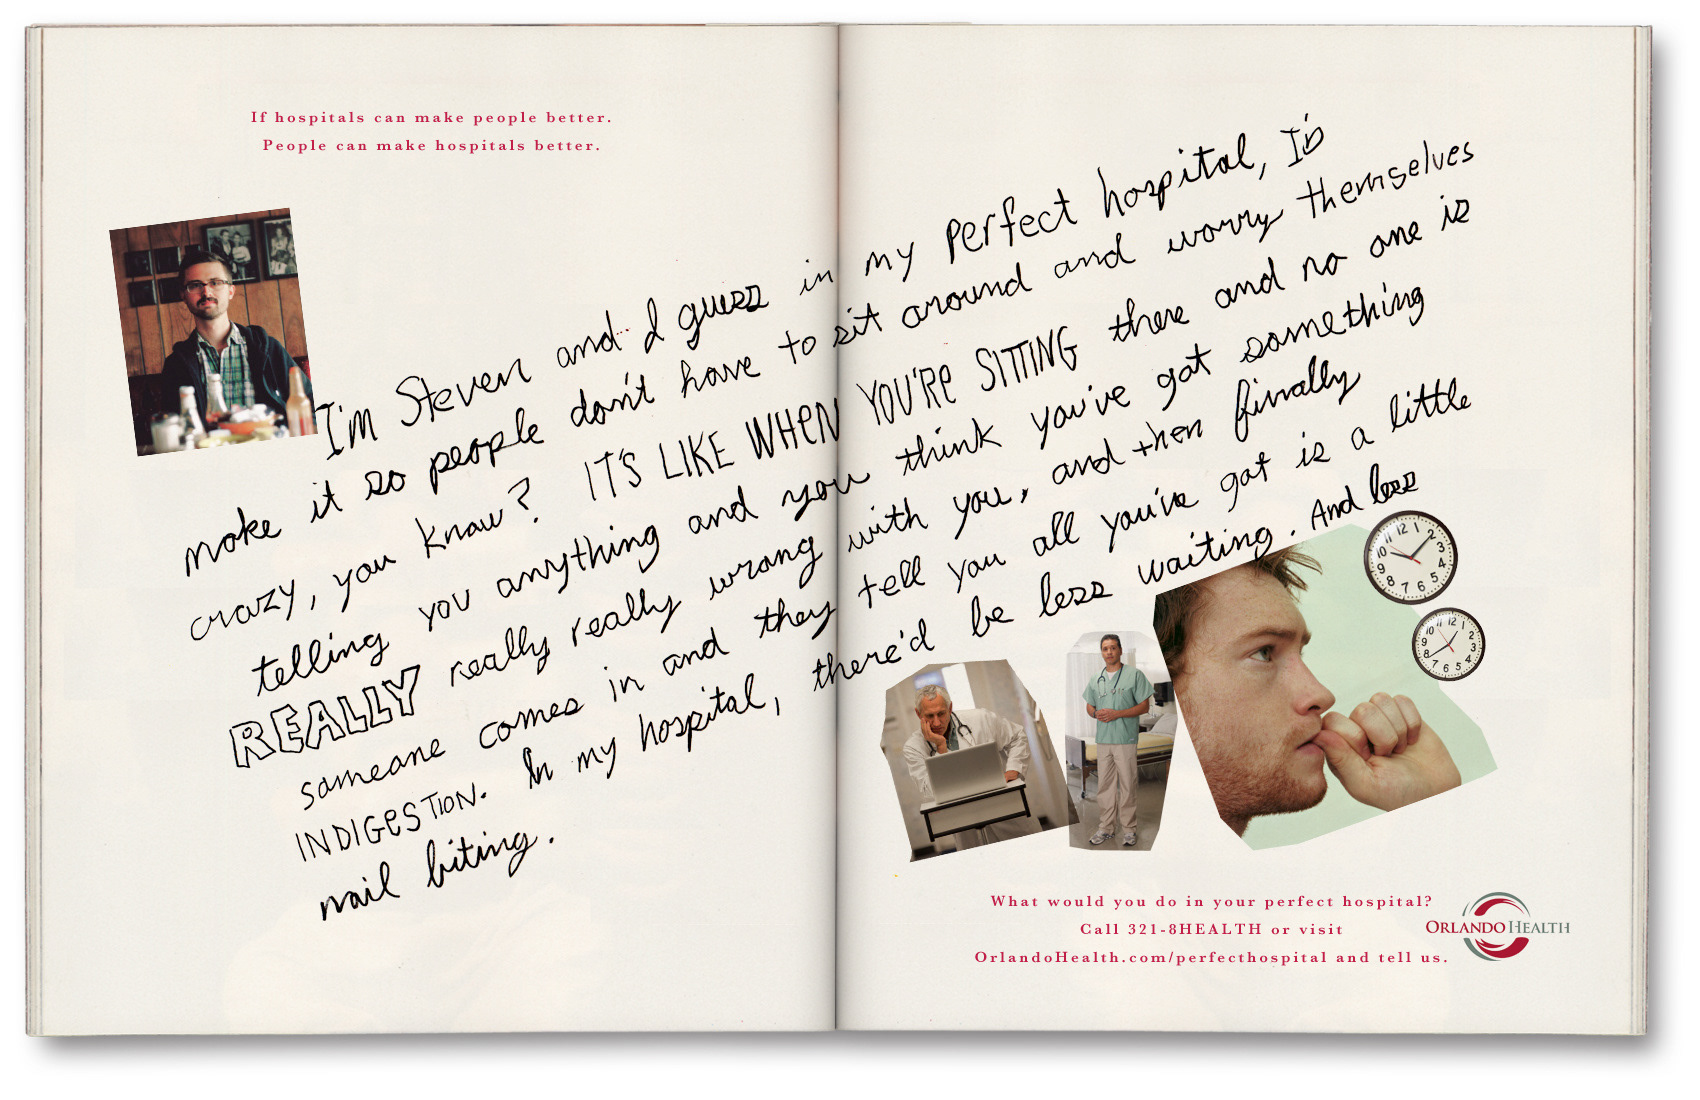 If hospitals can make people better.
People can make hospitals better.
I'm Steven and I guess in my perfect hospital, I'd
make it so people don't have to sit around and worry themselves
crazy, you know? IT'S LIKE WHEN YOU'RE SITTING there and no one is
telling you anything and you think you've got something
REALLY really really wrong with you, and then finally
someone comes in and they tell you all you've got is a little
INDIGESTION. In my hospital, there'd be less waiting. And less
nail biting.
What would you do in your perfect hospital?
Call 321-8HEALTH or visit
OrlandoHealth.com/perfecthospital and tell us.
ORLANDO HEALTH